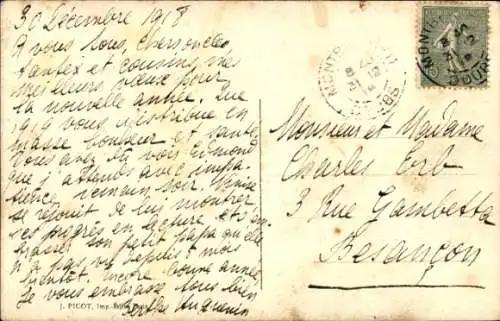 30 Décembre 1918
A vous tous, chers oncles,
tantes et cousins, mes
meilleurs vœux pour
la nouvelle année. Que
1919 vous distribue en
masse bonheur et santé
Vous avez dû voir Edmond
que j'attends avec impa
tience demain soir. Denise
se réjouit de lui montrer
ses progrès en lecture et d'em
brasser son petit papa qu'elle
n'a pas vu depuis 1 mois
bientôt. Encore bonne année
Je vous embrasse tous bien
Berthe Huguenin
J. PICOT, Imp.-Edit.
Monsieur et Madame
Charles Erb
3 Rue Gambetta
Besançon